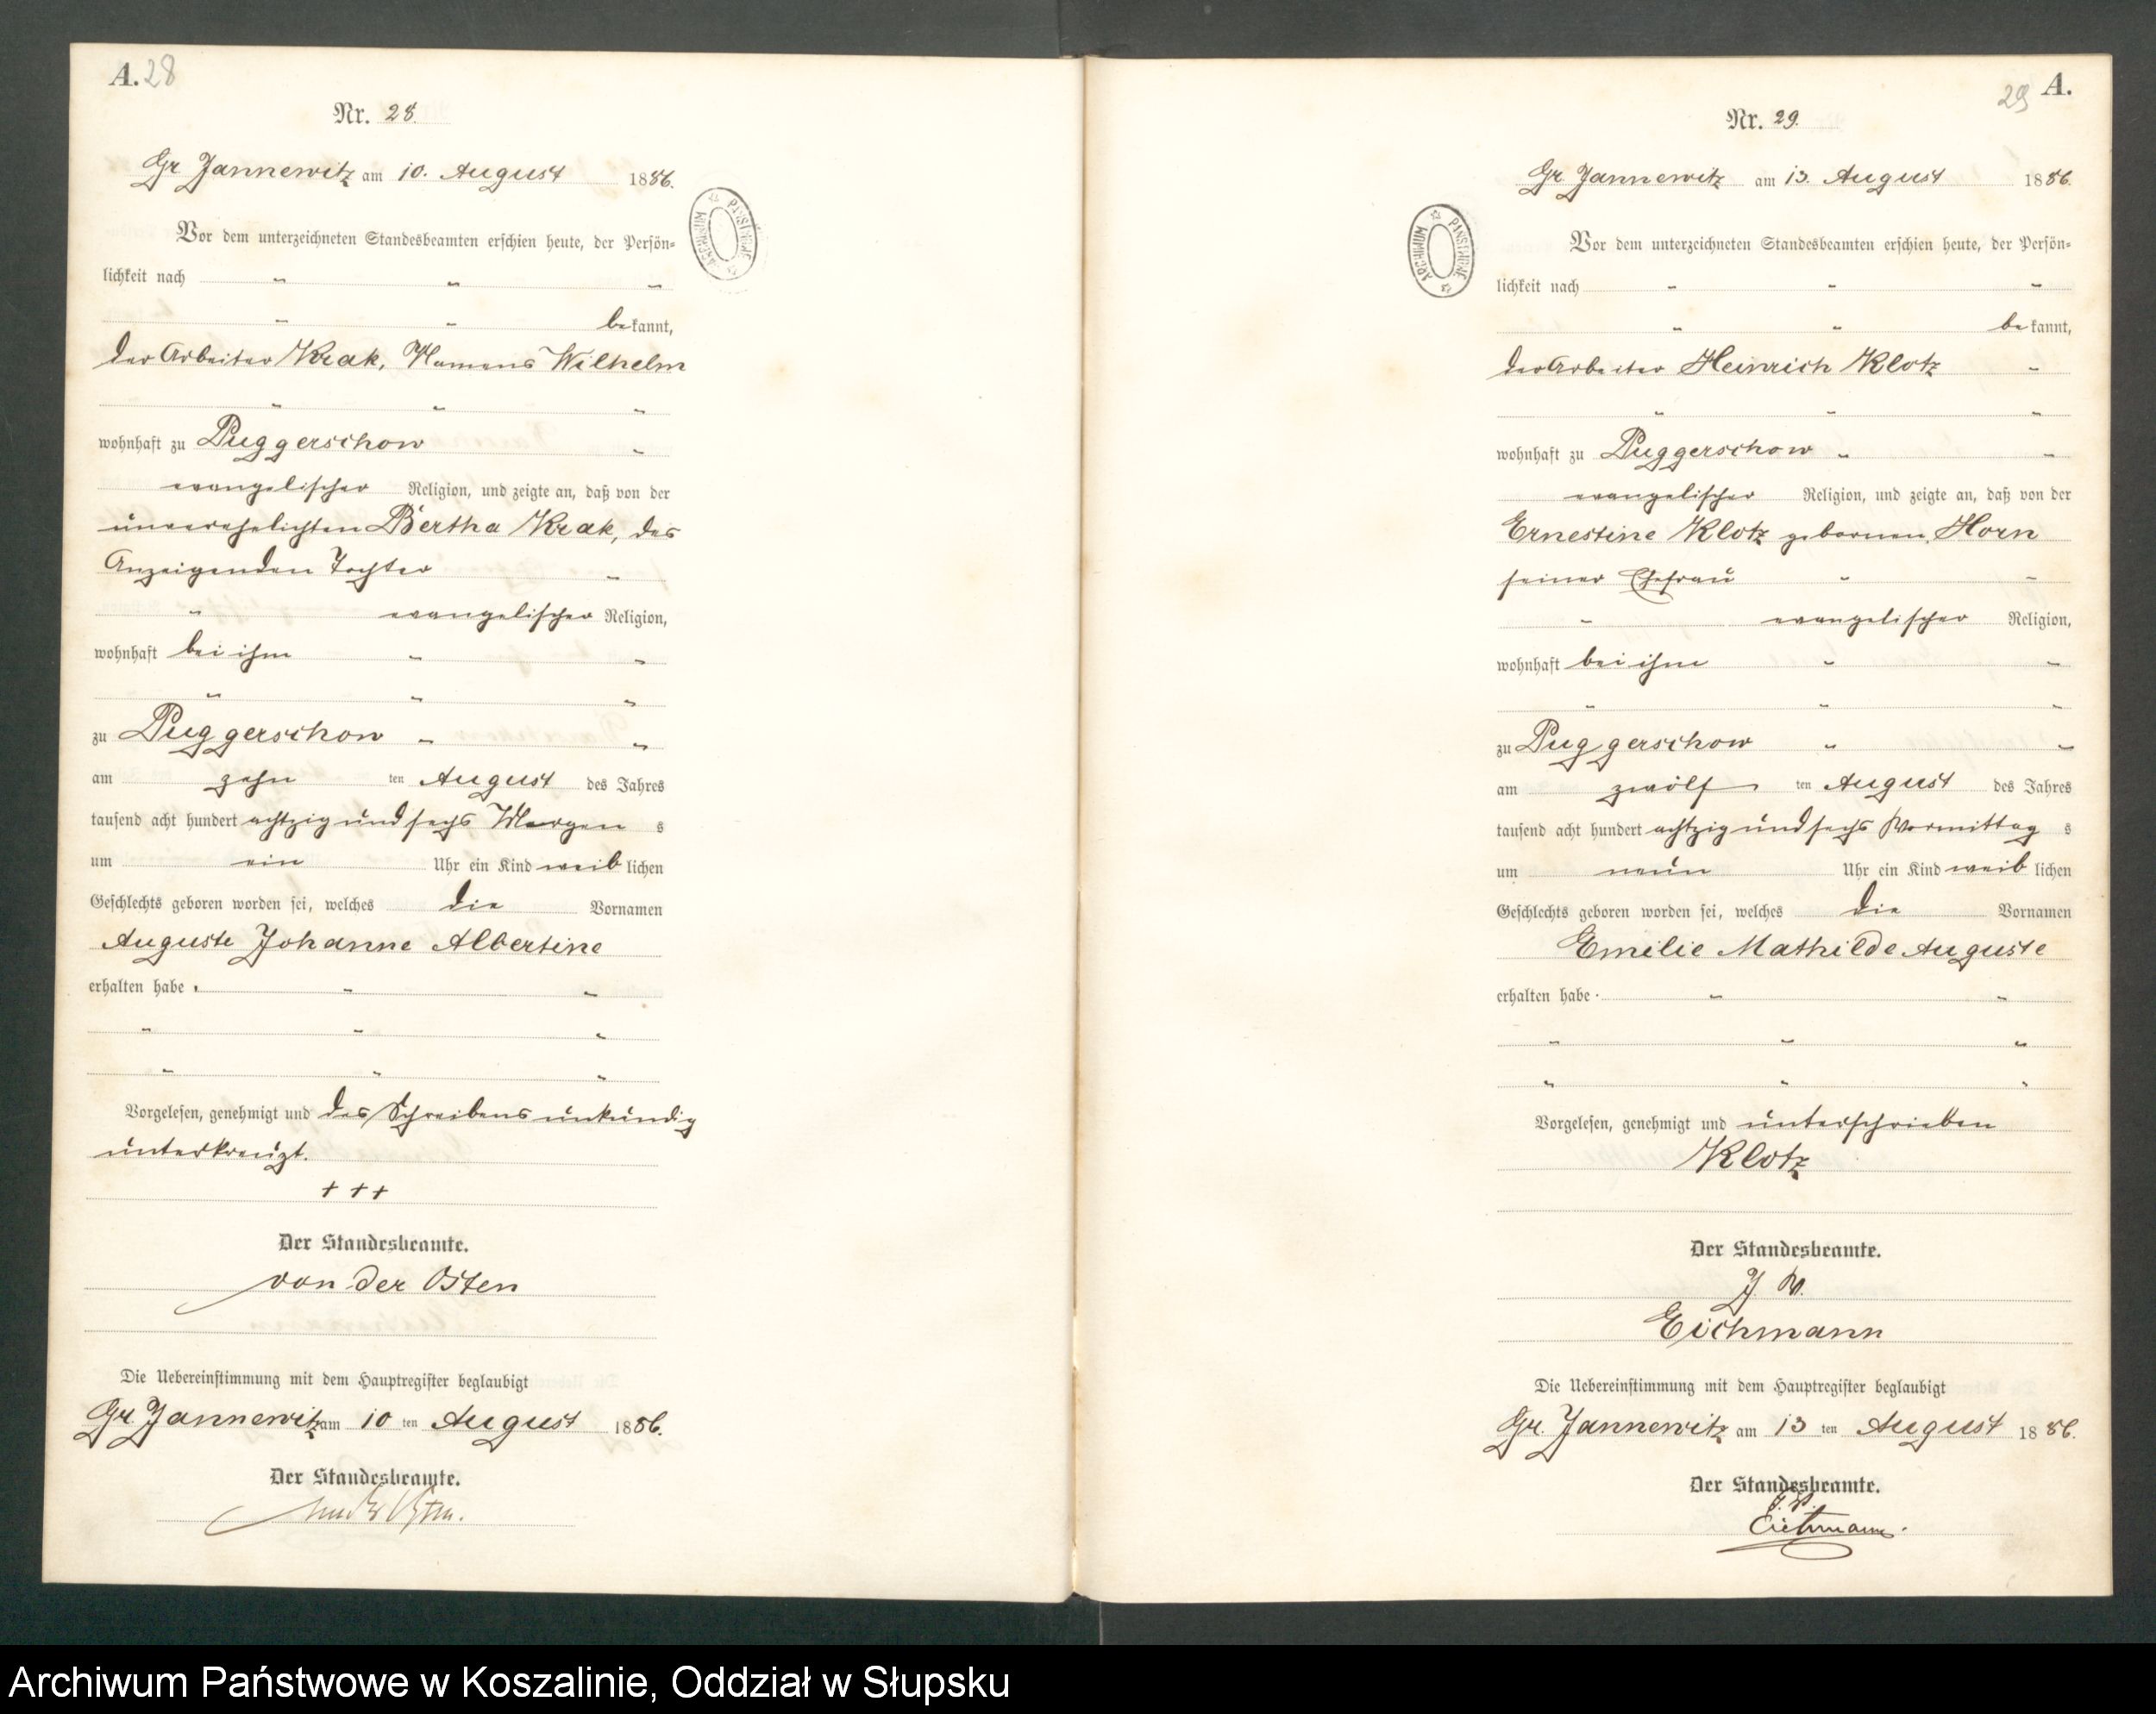 A. 28
Nr. 28.
Gr Jannewitz am 10. August 1886.
Vor dem unterzeichneten Standesbeamten erschien heute, der Persön-
lichkeit nach " " "
" " bekannt,
der Arbeiter Krak, Namens Wilhelm
" " "
wohnhaft zu Puggerschow "
evangelischer Religion, und zeigte an, daß von der
unverehelichten Bertha Krak, des
Anzeigenden Tochter "
" evangelischer Religion,
wohnhaft bei ihm " "
" " "
zu Puggerschow " "
am zehn ten August des Jahres
tausend acht hundert achtzig und sechs Morgen s
um ein Uhr ein Kind weib lichen
Geschlechts geboren worden sei, welches die Vornamen
Auguste Johanne Albertine
erhalten habe. " "
" " "
" " "
Vorgelesen, genehmigt und des Schreibens unkundig
unterkreuzt.
+++
Der Standesbeamte.
von der Osten
Die Uebereinstimmung mit dem Hauptregister beglaubigt
Gr. Jannewitz am 10 ten August 1886.
Der Standesbeamte.
von der Osten.
29 A.
Nr. 29.
Gr. Jannewitz am 13. August 1886.
Vor dem unterzeichneten Standesbeamten erschien heute, der Persön-
lichkeit nach " " "
" " bekannt,
der Arbeiter Heinrich Klotz "
" " "
wohnhaft zu Puggerschow " "
evangelischer Religion, und zeigte an, daß von der
Ernestine Klotz gebornen Horn
seiner Ehefrau " "
" evangelischer Religion,
wohnhaft bei ihm " "
" " "
zu Puggerschow " "
am zwölf ten August des Jahres
tausend acht hundert achtzig und sechs Vormittag s
um neun Uhr ein Kind weib lichen
Geschlechts geboren worden sei, welches die Vornamen
Emilie Mathilde Auguste
erhalten habe. " "
" " "
" " "
Vorgelesen, genehmigt und unterschrieben
Klotz
Der Standesbeamte.
J. V.
Eichmann
Die Uebereinstimmung mit dem Hauptregister beglaubigt
Gr. Jannewitz am 13 ten August 1886.
Der Standesbeamte.
J. V.
Eichmann.
ARCHIWUM PAŃSTWOWE
ARCHIWUM PAŃSTWOWE
Archiwum Państwowe w Koszalinie, Oddział w Słupsku